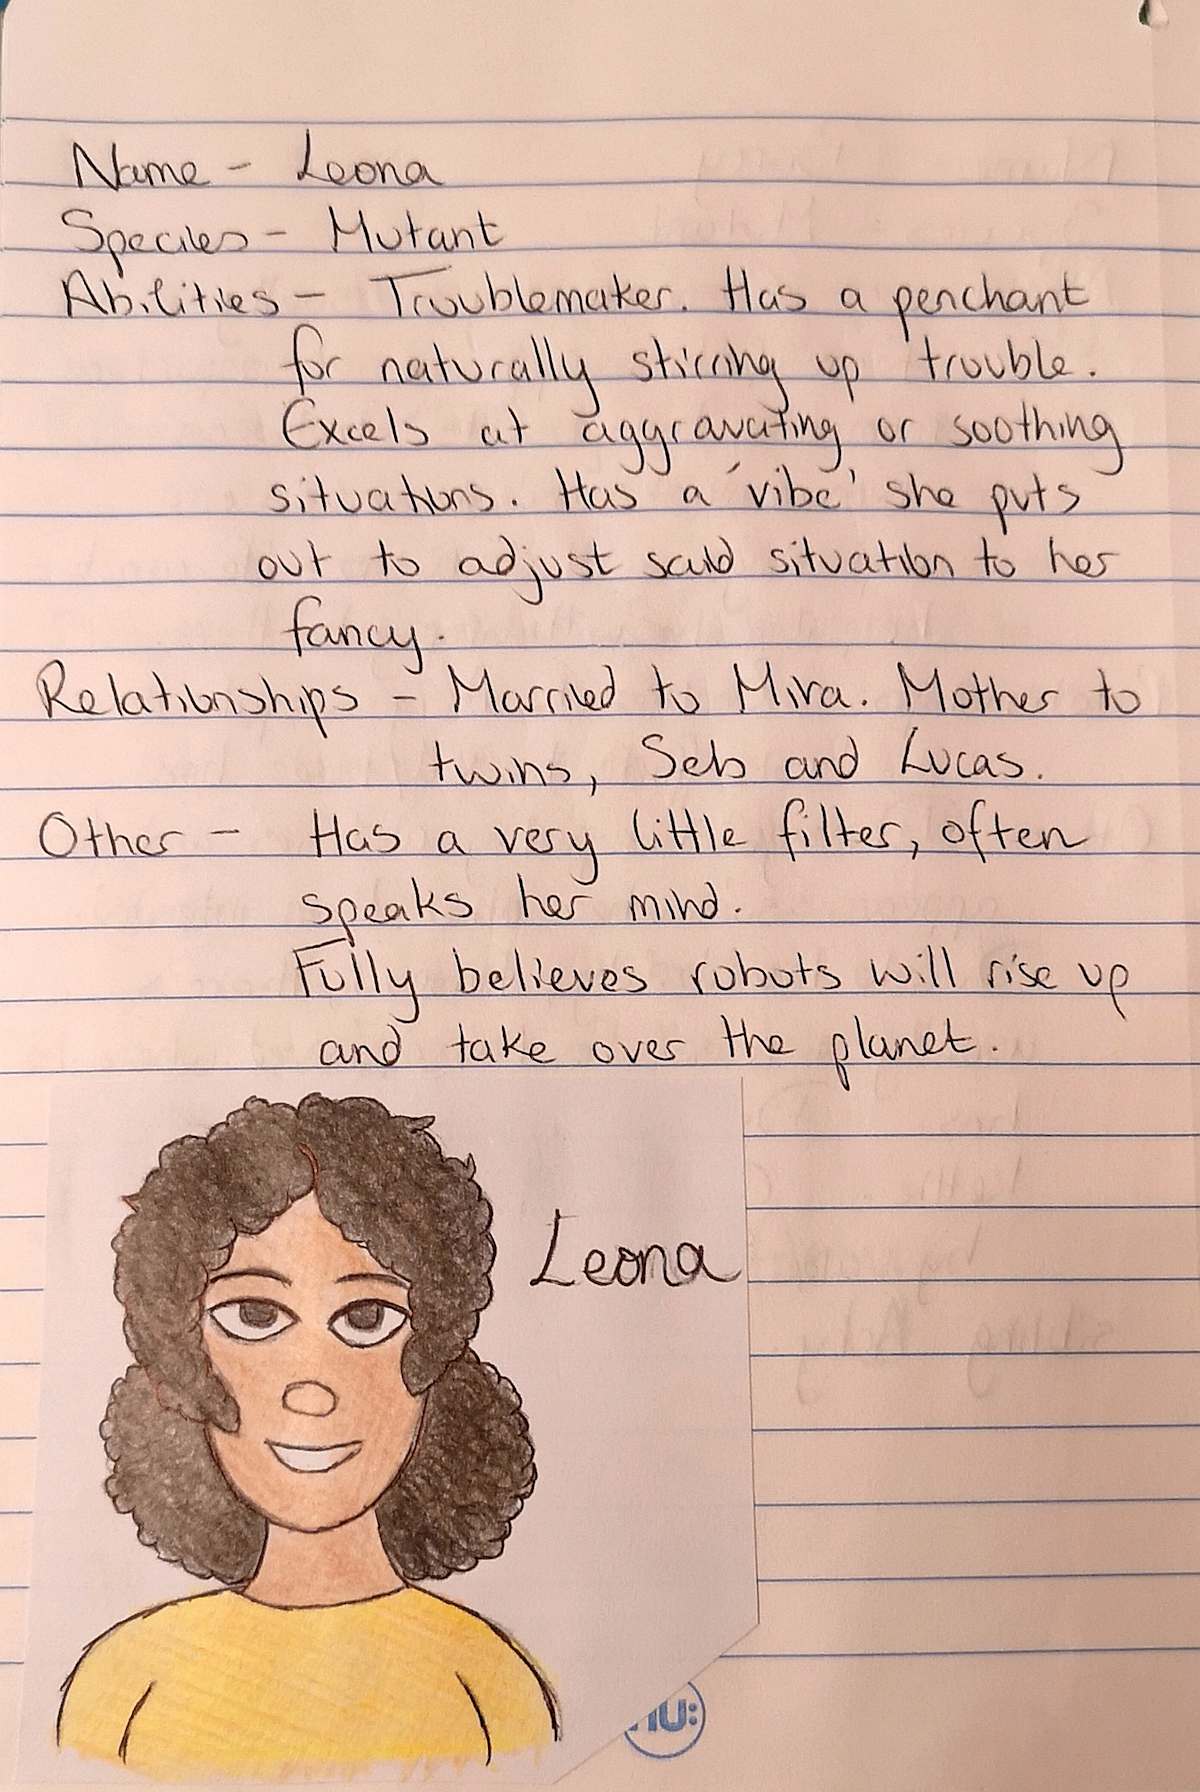 Name - Leona
Species - Mutant
Abilities - Troublemaker. Has a penchant
for naturally stirring up trouble.
Excels at aggravating or soothing
situations. Has a 'vibe' she puts
out to adjust said situation to her
fancy.
Relationships - Married to Mira. Mother to
twins, Seb and Lucas.
Other - Has a very little filter, often
speaks her mind.
Fully believes robots will rise up
and take over the planet.
Leona
nu: